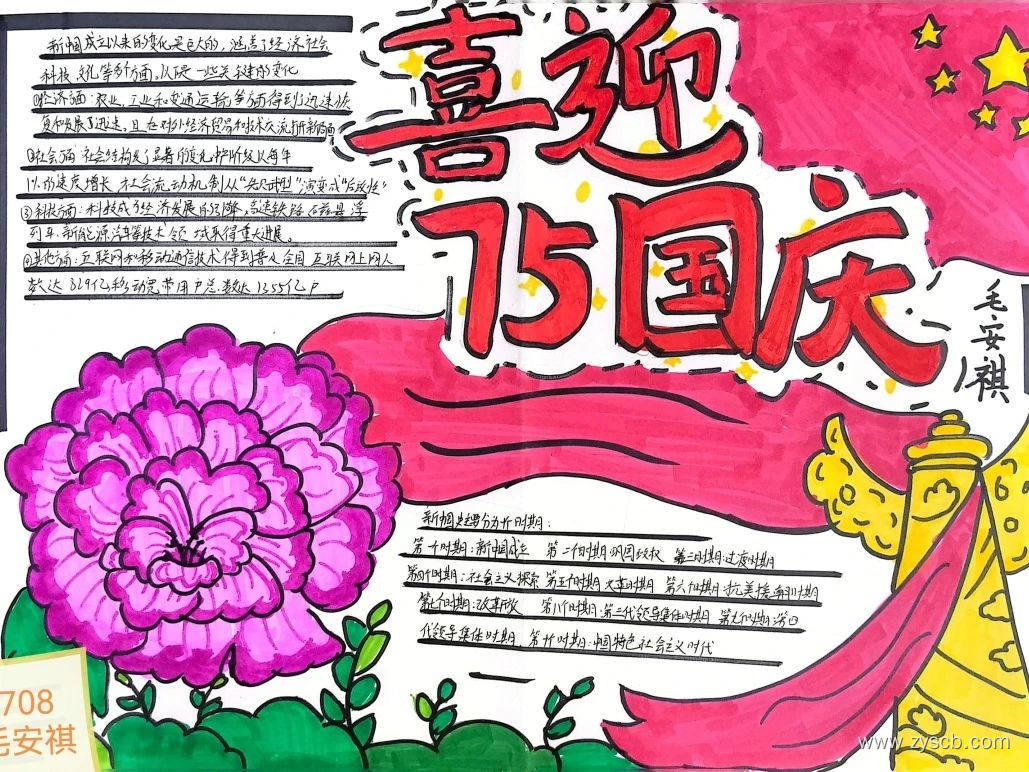 喜迎
75国庆
毛安祺
新中国成立以来的变化是巨大的,涵盖了经济社会
科技、文化等多个方面。以下是一些关键的变化
①经济方面:农业,工业和交通运输等方面得到了迅速恢
复和发展了迅速,且在对外经济贸易和技术交流打开新局面
②社会方面:社会结构发了显著的变化,中产阶级以每年
1%的速度增长 社会流动机制从“先赋型”演变成“后致性”
③科技方面:科技成了经济发展的引擎,高速铁路 磁悬浮
列车、新能源汽车等技术领域取得重大进展。
④其他方面:互联网和移动通信技术得到普及全国 互联网上网人
数达 8.29亿 移动宽带用户总数达13.55亿户
新中国史超分为十时期:
第一个时期:新中国成立 第二个时期:巩固政权 第三时期:过度时期
第四个时期:社会主义探索 第五个时期 文革时期 第六个时期:抗美援朝时期
第七个时期:改革开放 第八个时期:第三代领导集体时期 第九个时期:第四
代领导集体时期 第十时期:中国特色社会主义时代
708
毛安祺
www.zyscb.com